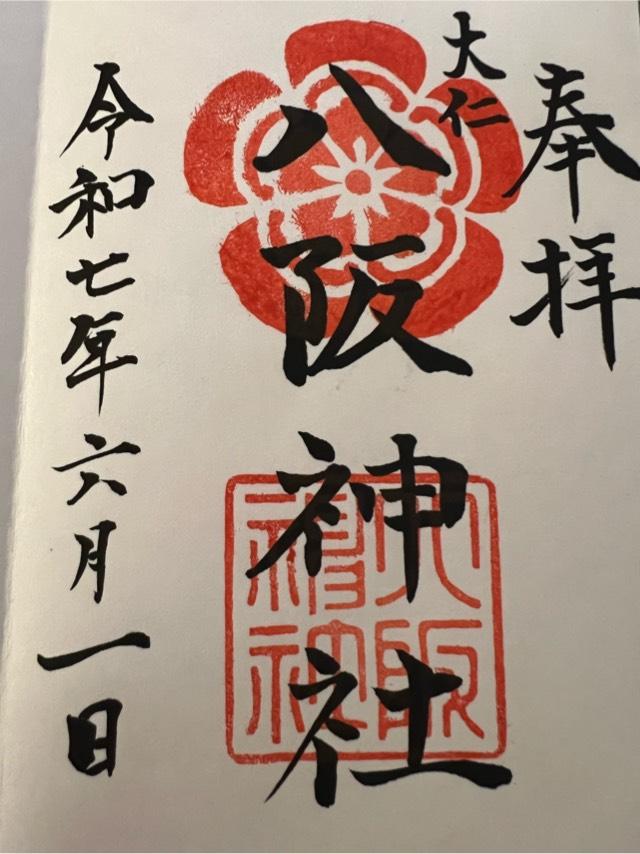 奉拝
大仁
八阪神社
令和七年六月一日